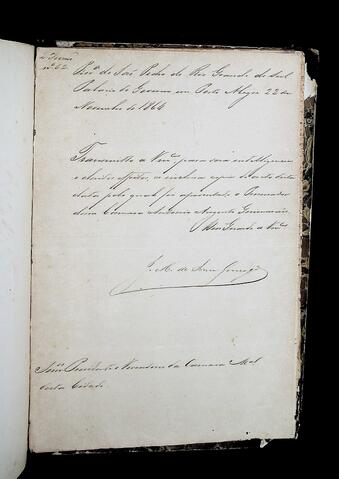 nº 62.
Provª de São Pedro do Rio Grande do Sul
Palacio do Governo em Porto Alegre 22 de
Novembro de 1864
Transmitto a Vmcês para sua intelligencia
e devidos effeitos, a inclusa copia do acto desta
data pelo qual foi aposentado o Procurador
dessa Camara Antonio Augusto
Deos Guarde a Vmcês
J. M. de Souza Gonzaga
Snrs. Presidente e Vereadores da Camara Mal
desta Cidade.